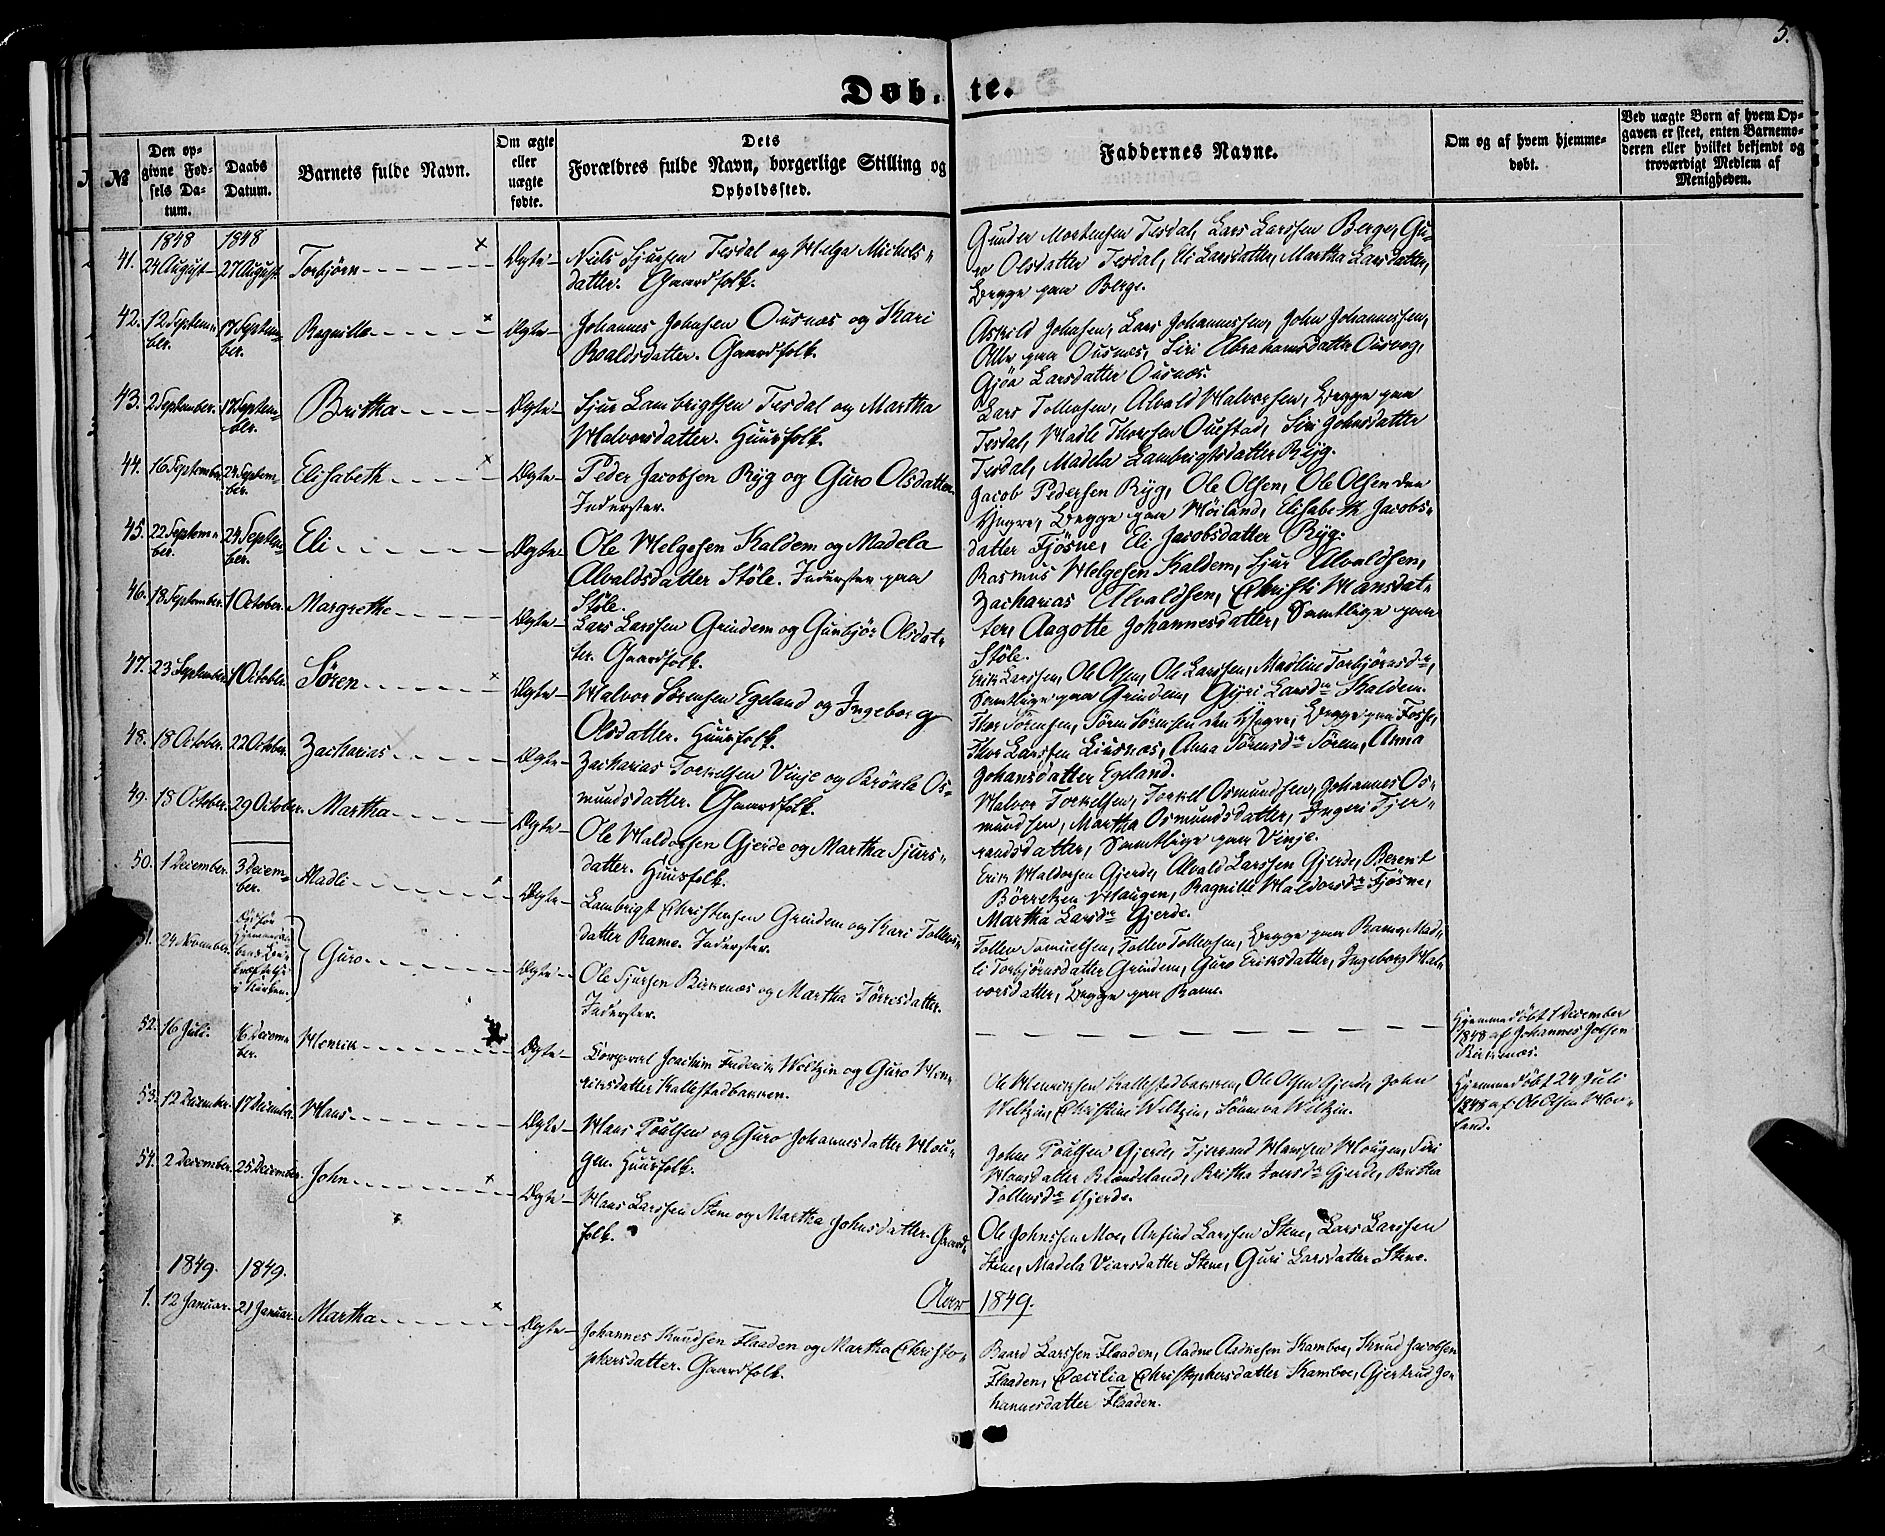 5.
Døb, te.
№
Den op-
givne Fød-
sels Da-
tum.
Daabs
Datum.
Barnets fulde Navn.
Om ægte
eller
uægte
fødte.
Dets
Forældres fulde Navn, borgerlige Stilling og
Opholdssted.
Faddernes Navne.
Om og af hvem hjemme-
døbt.
Ved uægte Børn af hvem Op-
gaven er skeet, enten Barnemo-
deren eller hvilket bekjendt og
troværdigt Medlem af
Menigheden.
1848 1848
41. 24 August 27 August Torbjörn Ægte
Niels Sjursen Tesdal og Helga Michels-
datter. Gaardfolk.
Gunder Mortensen Tesdal, Lars Larssen Berge, Gu-
ro Olsdatter Tesdal, Eli Larsdatter, Martha Larsdatter,
Begge paa Berge.
42. 12 Septem-
ber. 17 Septem-
ber. Ragnilla Ægte
Johannes Johnsen Ousnæs og Kari
Roaldsdatter. Gaardfolk.
Askild Johnsen, Lars Johannessen, John Johannessen,
Alle paa Ousnæs, Siri Abrahamsdatter Ousvog,
Gjöa Larsdatter Ousnæs.
43. 2 September. 17 Septem-
ber. Britha Ægte
Sjur Lambrigtsen Tesdal og Martha
Halvorsdatter. Huusfolk.
Lars Tollevsen, Alvald Halvorsen, Begge paa
Tesdal, Halle Thorsen Oustad, Siri Johnsdatter
Tesdal, Madela Lambrigtsdatter Ryg.
44. 16 September 24 Septem-
ber. Elisabeth Ægte
Peder Jacobsen Ryg og Guro Olsdatter
Inderster.
Jacob Pedersen Ryg, Ole Olsen, Ole Olsen den
Yngre, Begge paa Høiland, Elisabeth Jacobs-
datter Fjösne, Eli Jacobsdatter Ryg.
45. 22 Septem-
ber. 24 Septem-
ber. Eli Ægte
Ole Helgesen Kaldem og Madela
Alvaldsdatter Stöle. Inderster paa
Stöle.
Rasmus Helgesen Kaldem, Sjur Alvaldsen,
Zacharias Alvaldsen, Christi Hansdat-
ter, Aagotte Johannesdatter, Samtlige paa
Stöle.
46. 18 September. 1 October. Margrethe Ægte
Lars Larssen Grindem og Gunbjör Olsdat-
ter. Gaardfolk.
Erik Larssen, Ole Olsen, Ole Larssen, Madline Torbjörnsdr,
Samtlige paa Grindem, Gyri Larsdr Kaldem.
47. 23 September 1 October. Sören Ægte
Halvor Sörensen Egeland og Ingeborg
Olsdatter. Huusfolk.
Thor Sörensen, Sören Sörensen den Yngre, Begge paa Fosse,
Thor Larssen Liusnæs, Anna Sörensdr Sörem, Anna
Johansdatter Egeland.
48. 18 October. 22 October. Zacharias Ægte
Zacharias Torkelsen Vinje og Brönla Os-
mundsdatter. Gaardfolk.
Halvor Torkelsen, Torkel Osmundsen, Johannes Os-
mundsen, Martha Osmundsdatter, Ingeri Tjer-
randsdatter, Samtlige paa Vinje.
49. 18 October. 29 October. Martha Ægte
Ole Haldorsen Gjerde og Martha Sjurs-
datter. Huusfolk.
Erik Haldorsen Gjerde, Alvald Larssen Gjerde, Berent
Börretzen Haugen, Ragnille Haldorsdr Fjösne,
Martha Larsdr Gjerde.
50. 1 December. 3 Decem-
ber. Madli Ægte
Lambrigt Christensen Grindem og Kari Tollevs-
datter Rame. Inderster.
Tollev Samuelsen, Tollev Tollevsen, Begge paa Rame, Mad-
li Torbjörnsdatter Grindem, Guro Eriksdatter, Ingeborg Hal-
vorsdatter, Begge paa Rame.
51. 24 November. Guro Ægte
Ole Sjursen Birkenæs og Martha Törresdatter.
Inderster.
Hjemmedöbt 1 December
1848 af Johannes Jolsen
Birkenæs.
52. 16 Juli. 16 Decem-
ber. Henrik Ægte
Corporal Joachim Frederik Weltzin og Guro Hen-
riksdatter Kallestadbakken.
Ole Henriksen Kallestadbakken, Ole Olsen Gjerde, John
Weltzin, Christine Weltzin, Sönneva Weltzin.
Hjemmedöbt 24 Juli
1848 af Ole Olsen Hov-
land.
53. 12 December. 17 December. Hans Ægte
Hans Poulsen og Guro Johannesdatter Hou-
gen. Huusfolk.
Johne Poulsen Gjerde, Tjerrand Hansen Hougen, Siri
Hansdatter Rindeland, Britha Iversdr Gjerde, Britha
Tollevsdr Gjerde.
54. 2 December. 25 December. John Ægte
Hans Larssen Stene og Martha Johnsdatter. Gaard-
folk.
Ole Johnssen Moe, Anfind Larssen Stene, Lars Larssen
Stene, Madela Viarsdatter Stene, Guri Larsdatter Stene.
1849. 1849.
Aar 1849.
1. 12 Januar. 21 Januar. Martha Ægte
Johannes Knudsen Flaaden og Martha Christo-
phersdatter. Gaardfolk.
Baard Larssen Flaaden, Aadne Aadnesen Kamboe, Knud Jacobsen
Flaaden, Cæcilia Christophersdatter Kamboe, Gjertrud Jo-
hannesdatter Flaaden.